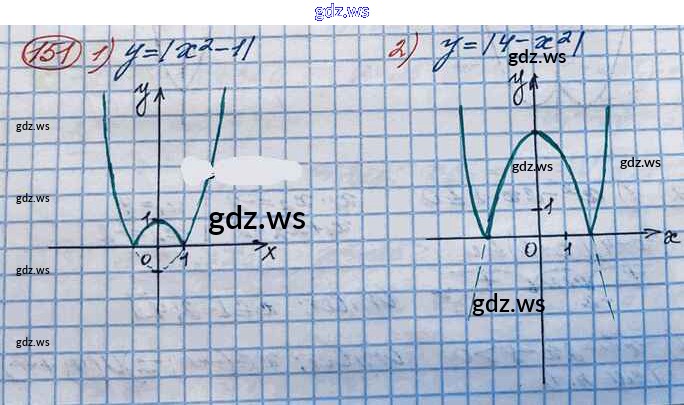 gdz.ws
151 1) y=|x²-1| 2) y=|4-x²|
gdz.ws
y y
gdz.ws
gdz.ws gdz.ws
gdz.ws
1 gdz.ws 1
0 1 x 0 1 x
gdz.ws
gdz.ws
gdz.ws